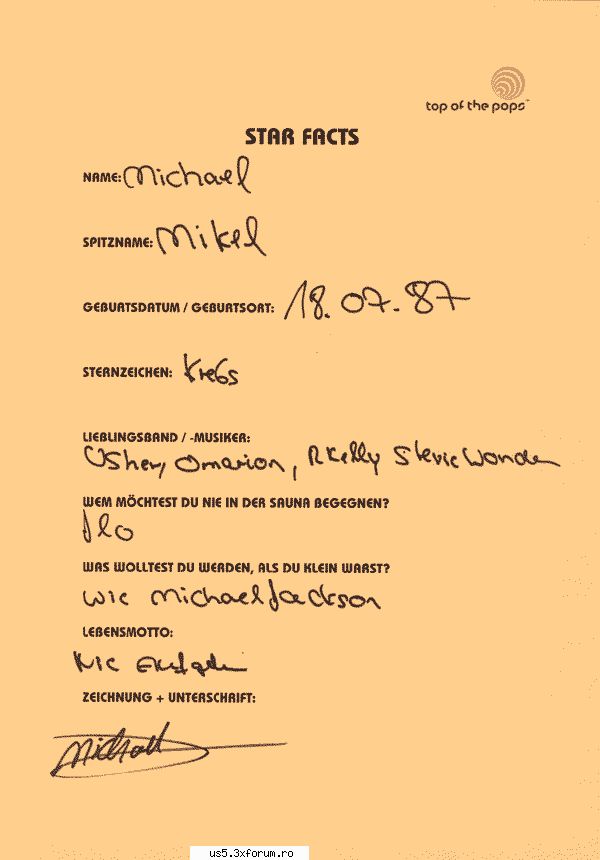 top of the pops™
STAR FACTS
NAME: Michael
SPITZNAME: Mikel
GEBURTSDATUM / GEBURTSORT: 18.07.87
STERNZEICHEN: Krebs
LIEBLINGSBAND / -MUSIKER:
Usher, Omarion, R Kelly Stevie Wonder
WEM MÖCHTEST DU NIE IN DER SAUNA BEGEGNEN?
WAS WOLLTEST DU WERDEN, ALS DU KLEIN WARST?
wie Michael Jackson
LEBENSMOTTO:
ZEICHNUNG + UNTERSCHRIFT:
Michael
us5.3xforum.ro